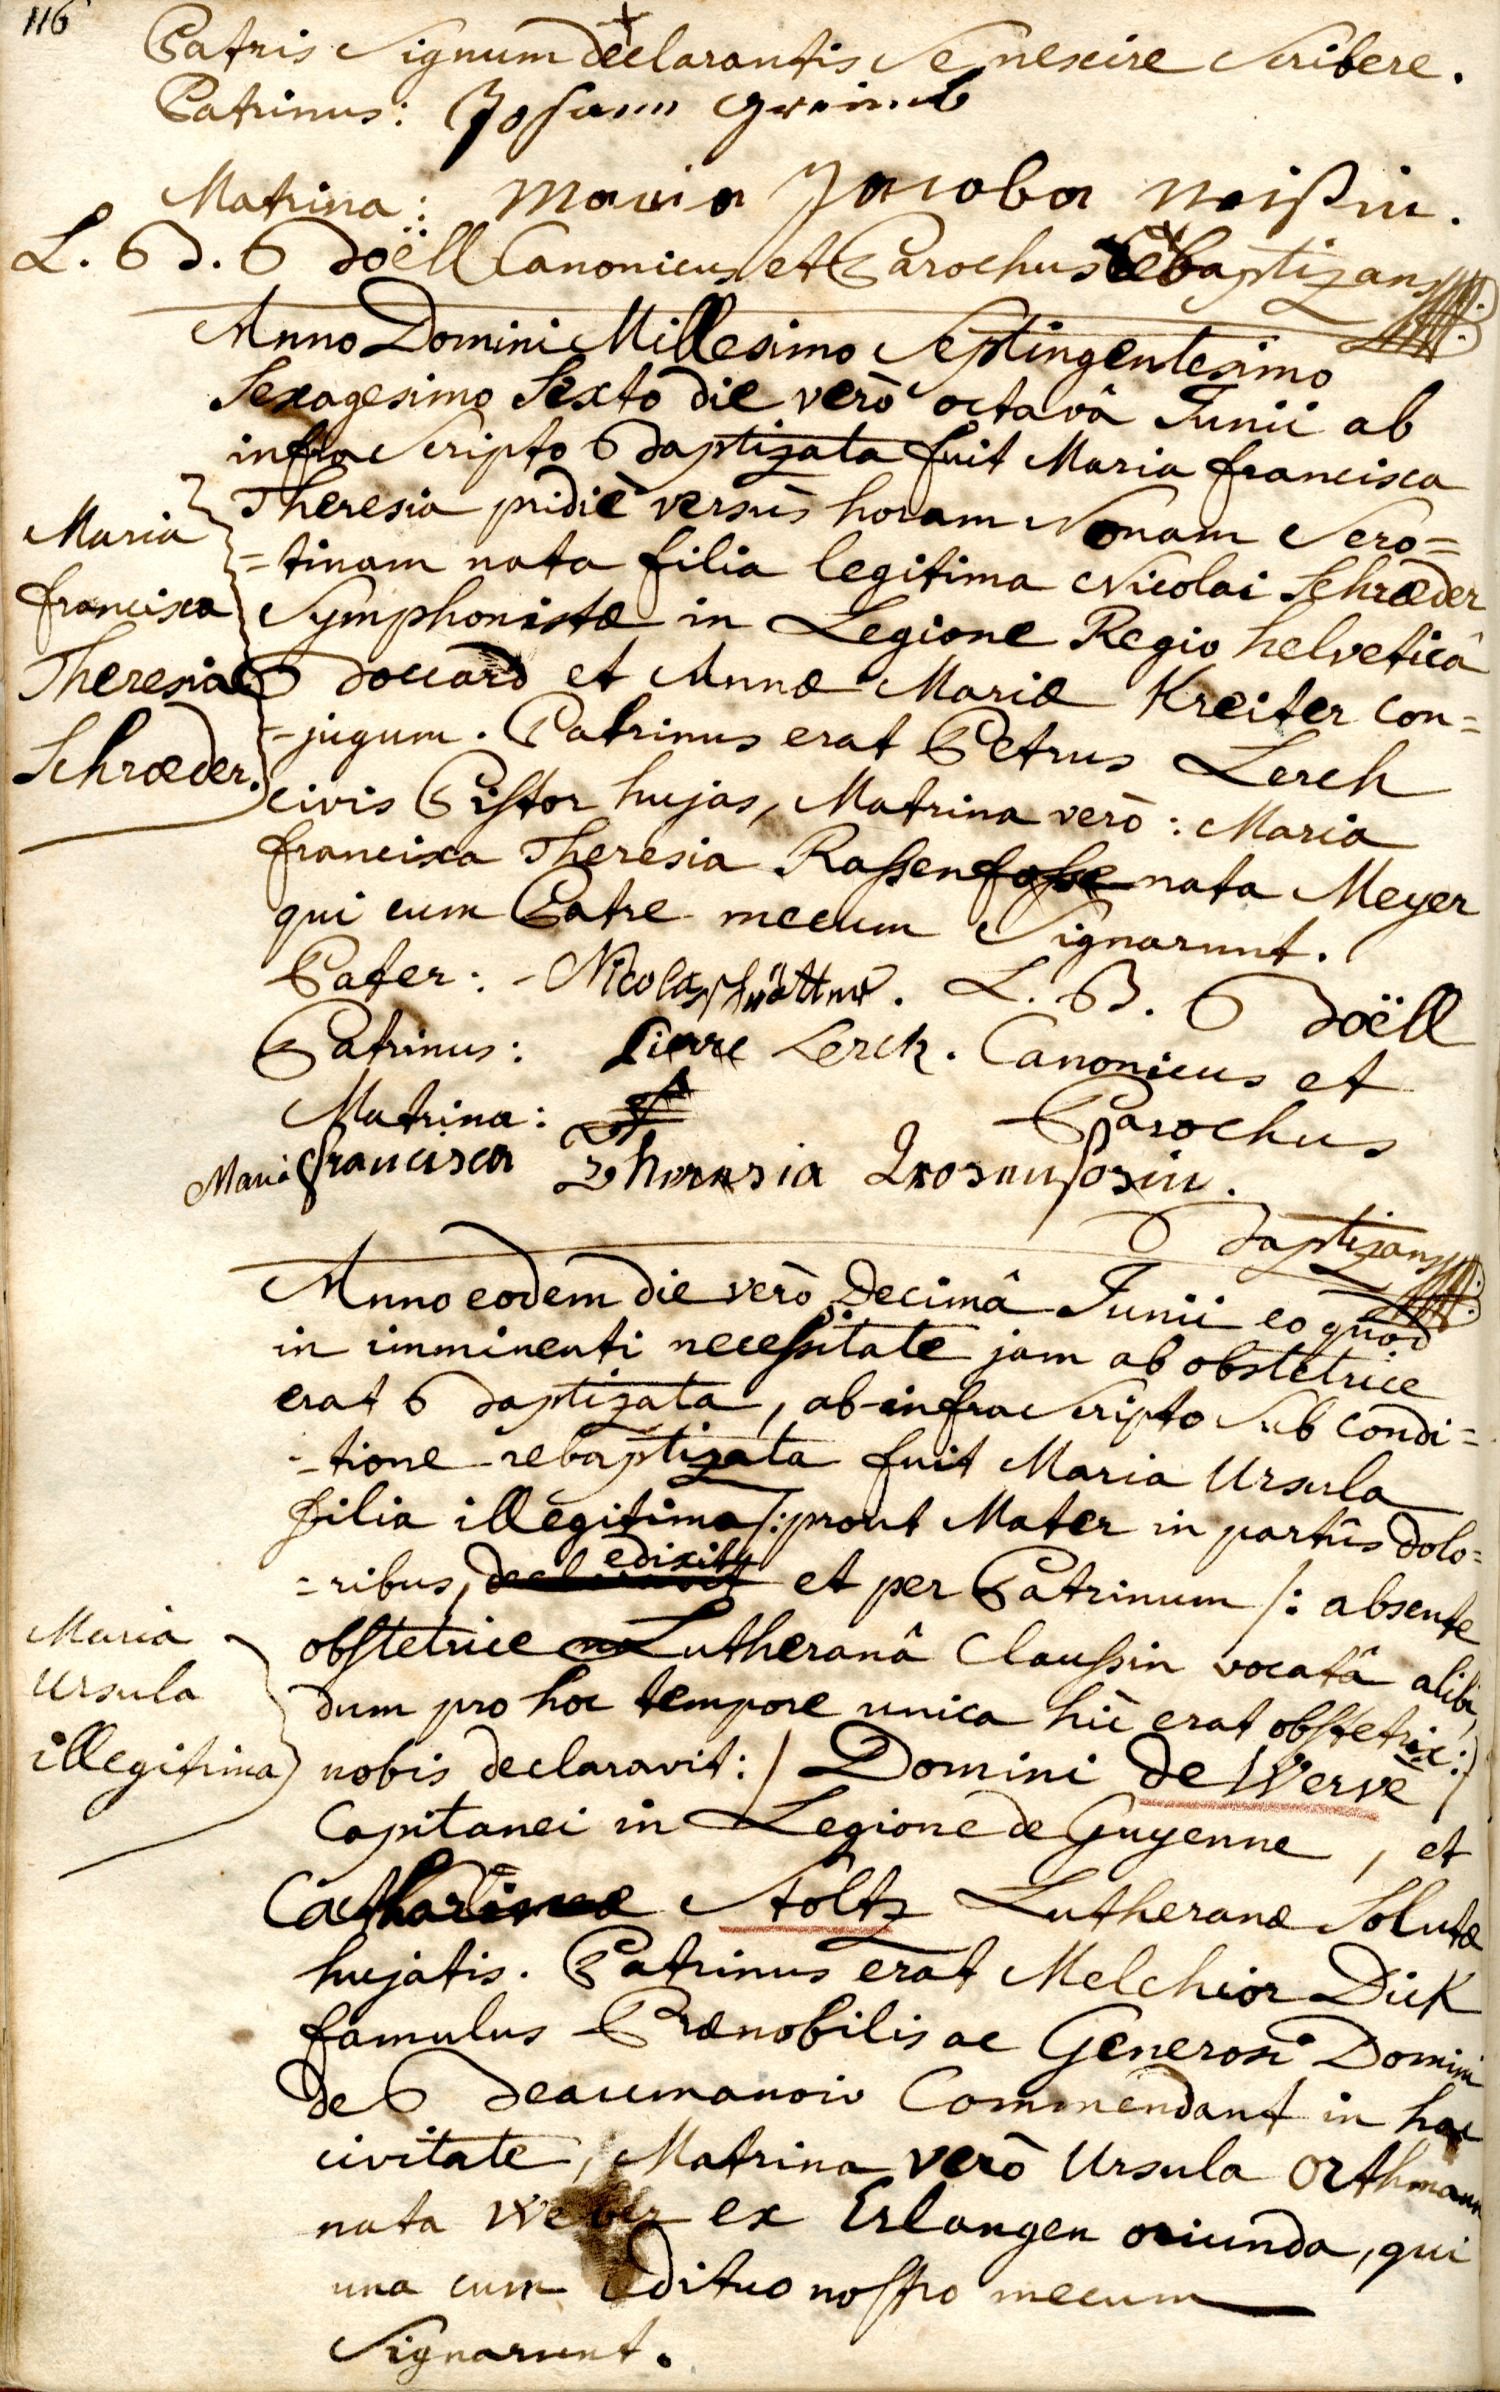 116
Patris Signum declarantis se nescire scribere.
Patrinus: Johann
Matrina: Maria Jacoba
L. B. Boëll Canonicus et Parochus Baptizans
Anno Domini Millesimo Septingentesimo
Sexagesimo Sexto die verò octavâ Junii ab
infra Scripto Baptizata fuit Maria francisca
Theresia pridiè versùs horam Nonam Sero=
=tinam nata filia legitima Nicolai Schræder
Symphonistæ in Legione Regio helveticâ
Boccard et Annæ Mariæ Kreiter con=
=jugum. Patrinus erat Petrus Lerch
civis Pistor hujas, Matrina verò: Maria
francisca Theresia Rassenfosse nata Meyer
qui cum Patre mecum Signarunt.
Maria
francisca
Theresia
Schræder.
Pater: Nicolas
L. B. Boëll
Patrinus: Pierre Lerch. Canonicus et
Matrina: Parochus
Maria francisca Theresia
Baptizans
Anno eodem die verò Decimâ Junii eo quod
in imminenti necessitate jam ab obstetrice
erat Baptizata, ab infra Scripto Sub condi=
=tione rebaptizata fuit Maria Ursula
filia illegitima /: prout Mater in partûs dolo=
=ribus, edixit et per Patrinum /: absente
obstetrice Lutheranâ Claussin vocatâ alibi,
dum pro hoc tempore unica hîc erat obstetrix :/
nobis declaravit :/ Domini de Wervè
Capitanei in Legione de Guyenne, et
Catharinæ Stöltz Lutheranæ Solutæ
hujatis. Patrinus erat Melchior Dick
famulus Prænobilis ac Generosi Domini
de Beaumanoir Commendant in hac
civitate, Matrina verò Ursula Orthmann
nata Weber ex Erlangen oriunda, qui
una cum Ædituo nostro mecum
Signarunt.
Maria
Ursula
illegitima